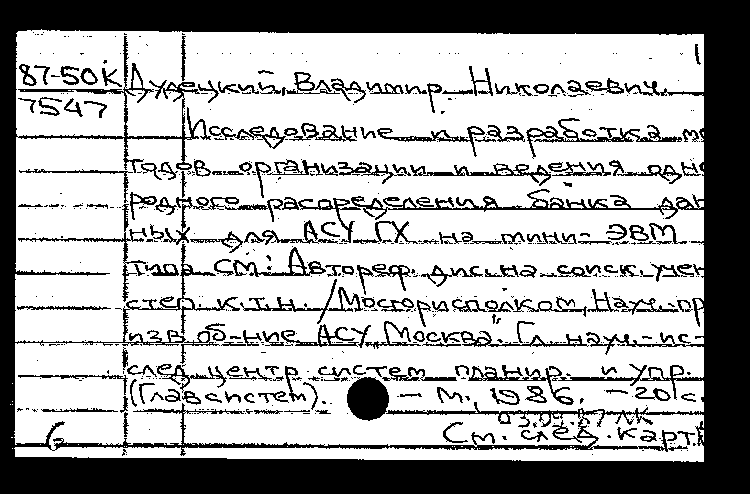 1
87-50К Дулецкий, Владимир Николаевич.
7547
Исследование и разработка ме
тодов организации и ведения одно
родного распределения банка дан
ных для АСУ ГХ на мини-ЭВМ
типа СМ: Автореф. дис. на соиск. учен
степ. к.т.н. / Мосгорисполком, Науч.-пр
изв об-ние АСУ "Москва". Гл. науч.-ис-
след центр систем планир. и упр.
(Главсистем). — М., 1986. — 20 с.
03.09.87 ЛК
6 См. след. карт.